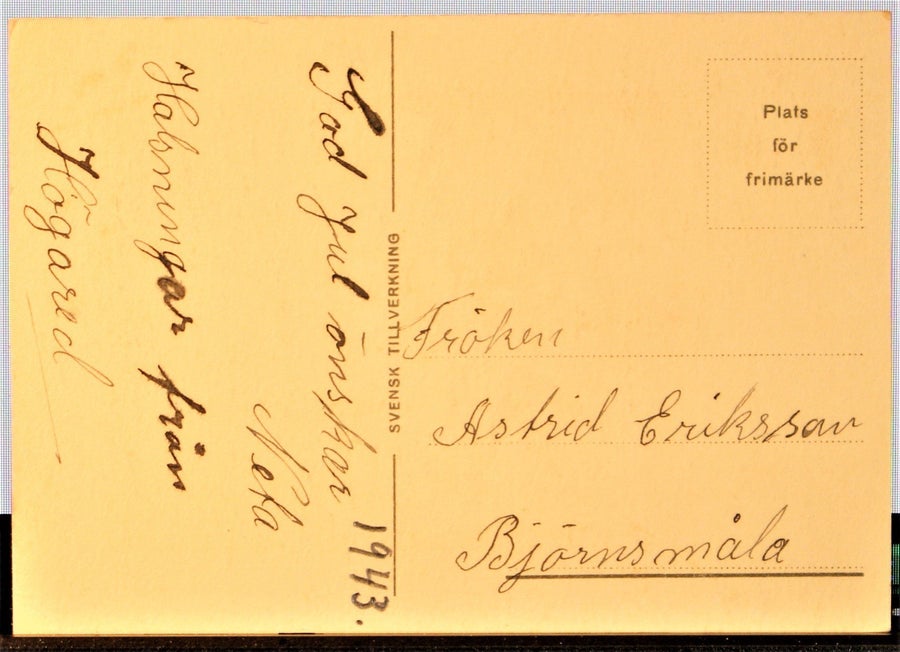 God Jul önskar
Neta
Halsningar från
Högared
1943.
SVENSK TILLVERKNING
Plats
för
frimärke
Fröken
Astrid Eriksson
Björnsmåla